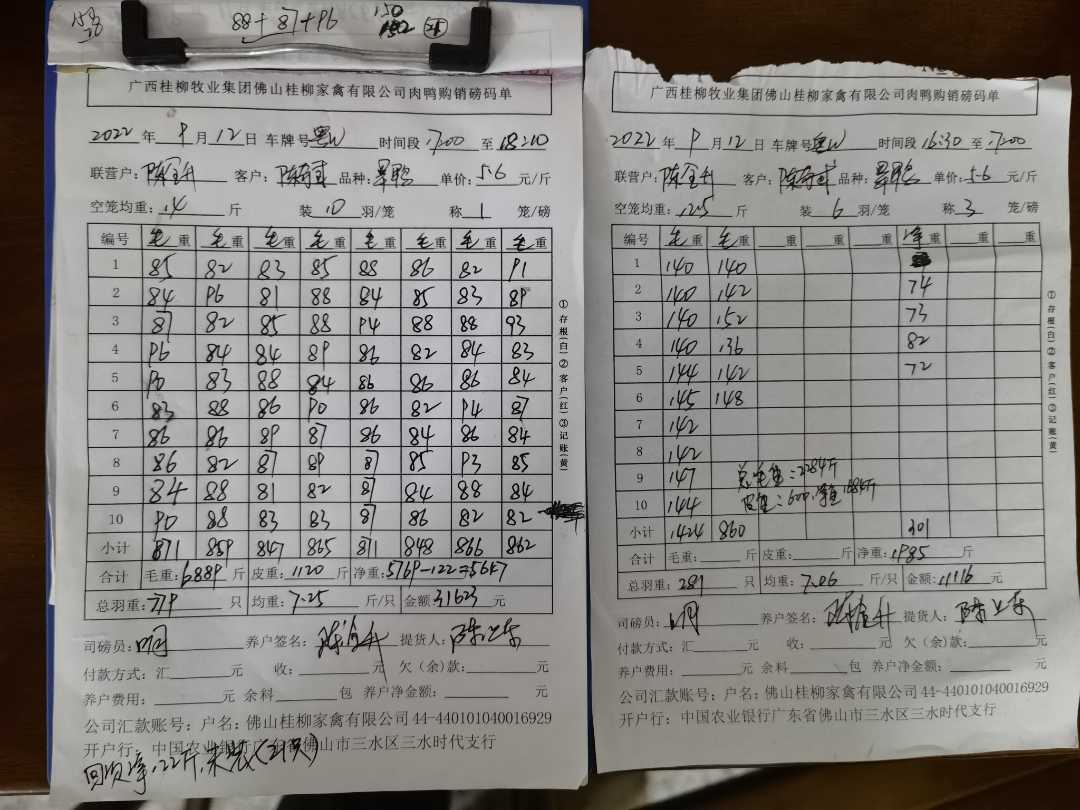 88+87+96 150
广西桂柳牧业集团佛山桂柳家禽有限公司肉鸭购销磅码单
2022年 9月12日 车牌号粤W 时间段17:00至18:10
联营户: 客户: 品种: 单价:5.6元/斤
空笼均重:14斤 装10羽/笼 称1笼/磅
编号 毛重 毛重 毛重 毛重 毛重 毛重 毛重 毛重
1 85 82 83 85 88 86 82 91
2 84 96 81 88 84 85 83 89
3 87 82 85 88 94 88 88 93
4 96 84 84 89 86 82 84 83
5 90 83 88 84 86 86 86 84
6 83 88 86 90 86 82 94 87
7 86 86 89 87 86 84 86 84
8 86 82 87 89 87 85 93 85
9 84 88 81 82 87 84 88 84
10 90 88 83 83 87 86 82 82
小计 871 859 847 865 871 848 866 862
合计 毛重:6889斤 皮重:1120斤 净重:5769-122=5647
总羽重:779只 均重:7.25斤/只 金额31623元
司磅员: 养户签名: 提货人:
付款方式:汇 收: 元 欠(余)款: 元
养户费用: 元 余料 包 养户净金额: 元
公司汇款账号:户名:佛山桂柳家禽有限公司44-440101040016929
开户行:中国农业银行广东省佛山市三水区三水时代支行
122斤
①存根(白)②客户(红)③记账(黄)
广西桂柳牧业集团佛山桂柳家禽有限公司肉鸭购销磅码单
2022年 9月12日 车牌号粤W 时间段16:30至17:00
联营户: 客户: 品种: 单价:5.6元/斤
空笼均重:12.5斤 装6羽/笼 称3笼/磅
编号 毛重 毛重 重 重 重 净重 重 重
1 140 140
2 140 142 74
3 140 152 73
4 140 136 82
5 144 142 72
6 145 148
7 142
8 142
9 147 总毛重:2284斤
10 144 皮重:600
小计 1424 860 301
合计 毛重: 斤 皮重: 斤 净重:1985斤
总羽重:281只 均重:7.06斤/只 金额:11116元
司磅员: 养户签名: 提货人:
付款方式:汇 收: 元 欠(余)款: 元
养户费用: 元 余料 包 养户净金额: 元
公司汇款账号:户名:佛山桂柳家禽有限公司44-440101040016929
开户行:中国农业银行广东省佛山市三水区三水时代支行
①存根(白)②客户(红)③记账(黄)